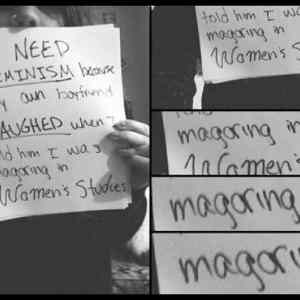 NEED
EMINISM because
y own boyfriend
AUGHED when I
old him I was
magoring in
Women's Studies
told him I wa
magoring in
Women's
magoring in
Women's
magoring
magori